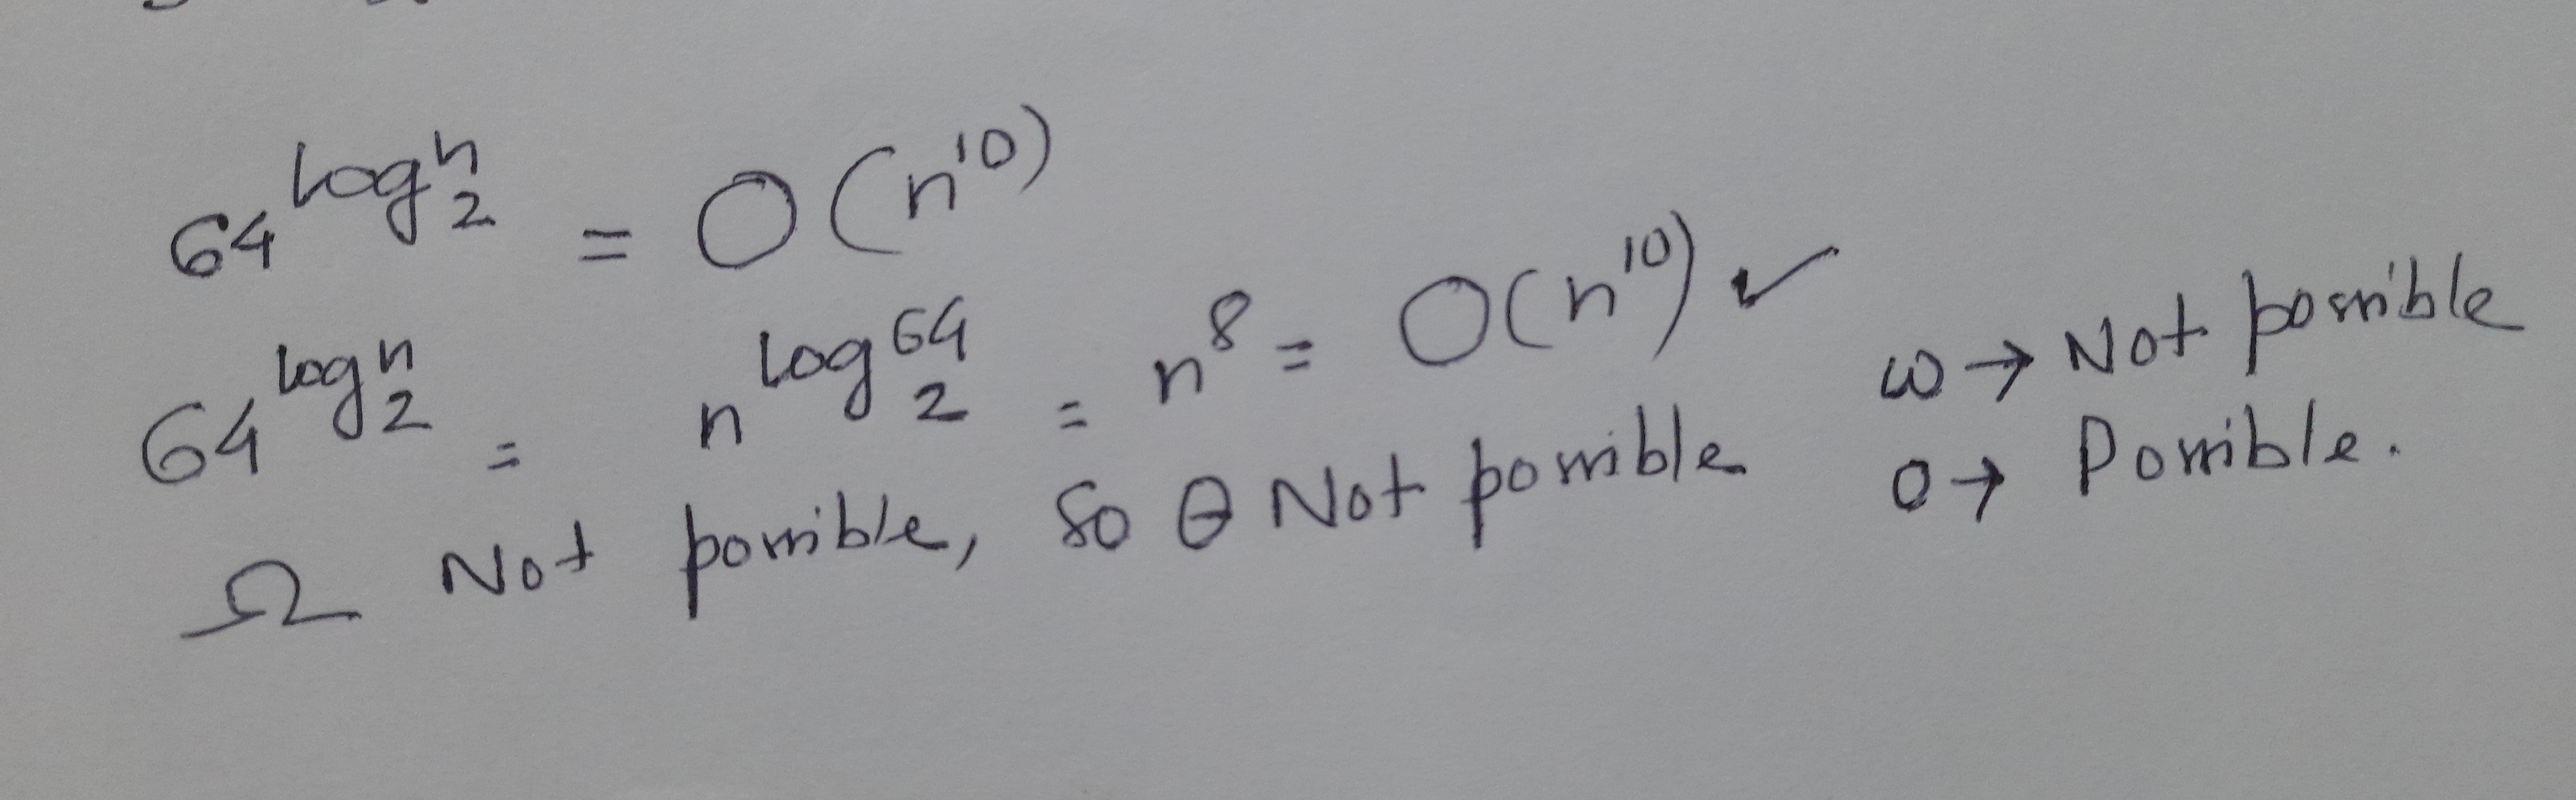 64^{log_2^n} = O(n^{10})
64^{log_2^n} = n^{log_2^{64}} = n^8 = O(n^{10}) ✓
ω → Not possible
Ω Not possible, So θ Not possible
o → Possible.